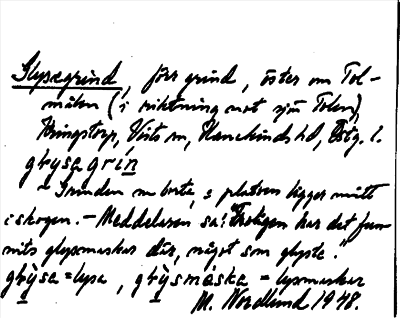 Glysegrind, förr grind, öster om Tol-
måla (i riktning mot sjön Tolen),
Kringstorp, Vists sn, Hanekinds hd, Östg. l.
glysa grin
- Grinden är borta, o platsen ligger mitt
i skogen. - Meddelaren sa: "Troligen har det fun-
nits glysmaskar där, något som glyste."
glysa = lysa, glysmaska = lysmaskar
M. Nordlund 1948.